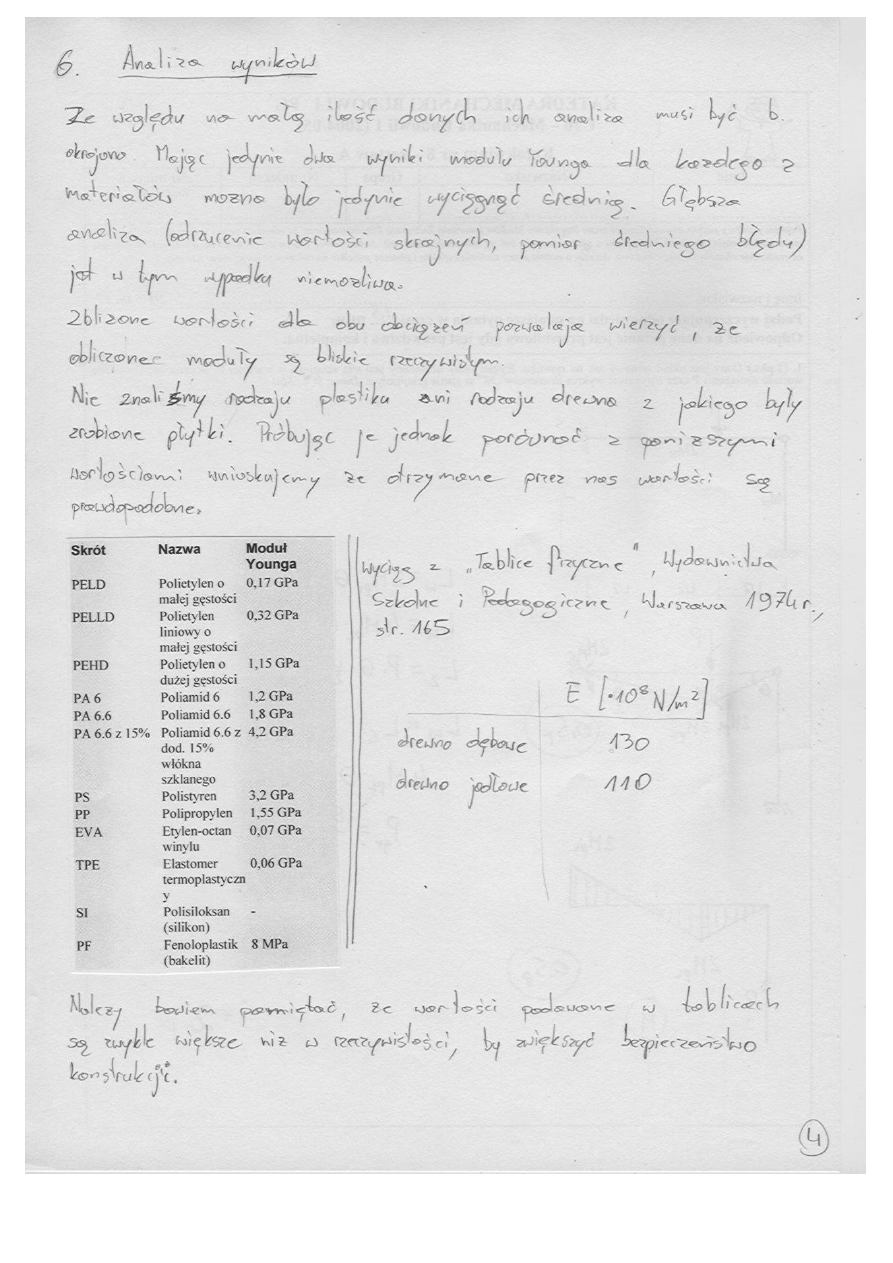 6. Analiza wyników
Ze względu na małą ilość danych ich analiza musi być b.
okrojona. Mając jedynie dwa wyniki modułu Younga dla każdego z
materiałów można było jedynie wyciągnąć średnią. Głębsza
analiza (odrzucenie wartości skrajnych, pomiar średniego błędu)
jest w tym wypadku niemożliwa.
Zbliżone wartości dla obu obciążeń pozwalają wierzyć, że
obliczone moduły są bliskie rzeczywistym.
Nie znaliśmy rodzaju plastiku ani rodzaju drewna z jakiego były
zrobione płytki. Próbując je jednak porównać z poniższymi
wartościami wnioskujemy że otrzymane przez nas wartości są
prawdopodobne.
Skrót Nazwa Moduł
Younga
PELD Polietylen o 0,17 GPa
małej gęstości
PELLD Polietylen 0,32 GPa
liniowy o
małej gęstości
PEHD Polietylen o 1,15 GPa
dużej gęstości
PA 6 Poliamid 6 1,2 GPa
PA 6.6 Poliamid 6.6 1,8 GPa
PA 6.6 z 15% Poliamid 6.6 z 4,2 GPa
dod. 15%
włókna
szklanego
PS Polistyren 3,2 GPa
PP Polipropylen 1,55 GPa
EVA Etylen-octan 0,07 GPa
winylu
TPE Elastomer 0,06 GPa
termoplastyczn
y
SI Polisiloksan -
(silikon)
PF Fenoloplastik 8 MPa
(bakelit)
wyciąg z „Tablice fizyczne", Wydawnictwa
Szkolne i Pedagogiczne, Warszawa 1974r.,
str. 165
E [·10⁸ N/m²]
drewno dębowe 130
drewno jodłowe 110
Należy bowiem pamiętać, że wartości podawane w tablicach
są zwykle większe niż w rzeczywistości, by zwiększyć bezpieczeństwo
konstrukcji.
4